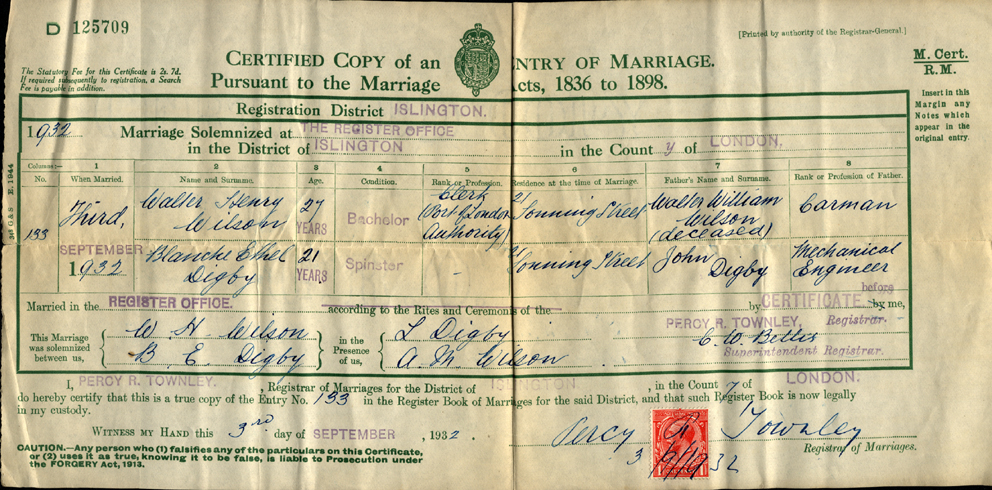 D 125709
[Printed by authority of the Registrar-General.]
CERTIFIED COPY of an ENTRY OF MARRIAGE.
Pursuant to the Marriage Acts, 1836 to 1898.
The Statutory Fee for this Certificate is 2s. 7d.
If required subsequently to registration, a Search
Fee is payable in addition.
M. Cert.
R.M.
Insert in this
Margin any
Notes which
appear in the
original entry.
Registration District ISLINGTON.
1932 Marriage Solemnized at THE REGISTER OFFICE
in the District of ISLINGTON in the County of LONDON.
Columns:— 1 2 3 4 5 6 7 8
No. When Married. Name and Surname. Age. Condition. Rank or Profession. Residence at the time of Marriage. Father's Name and Surname. Rank or Profession of Father.
133 Third, Walter Henry Wilson 27 YEARS Bachelor Clerk (Port of London Authority) 21 Sonning Street Walter William Wilson (deceased) Carman
SEPTEMBER 1932 Blanche Ethel Digby 21 YEARS Spinster - 21 Sonning Street John Digby Mechanical Engineer
Married in the REGISTER OFFICE. according to the Rites and Ceremonies of the by CERTIFICATE. before by me,
This Marriage was solemnized between us, W. H. Wilson
B. E. Digby
in the Presence of us, L Digby
A. M. Wilson
PERCY R. TOWNLEY, Registrar.
C. W. Bettis
Superintendent Registrar.
I, PERCY R. TOWNLEY. , Registrar of Marriages for the District of ISLINGTON , in the County of LONDON.
do hereby certify that this is a true copy of the Entry No. 133 in the Register Book of Marriages for the said District, and that such Register Book is now legally
in my custody.
WITNESS MY HAND this 3rd day of SEPTEMBER , 1932.
Percy R Townley
3/9/1932
Registrar of Marriages.
CAUTION.—Any person who (1) falsifies any of the particulars on this Certificate,
or (2) uses it as true, knowing it to be false, is liable to Prosecution under
the FORGERY Act, 1913.